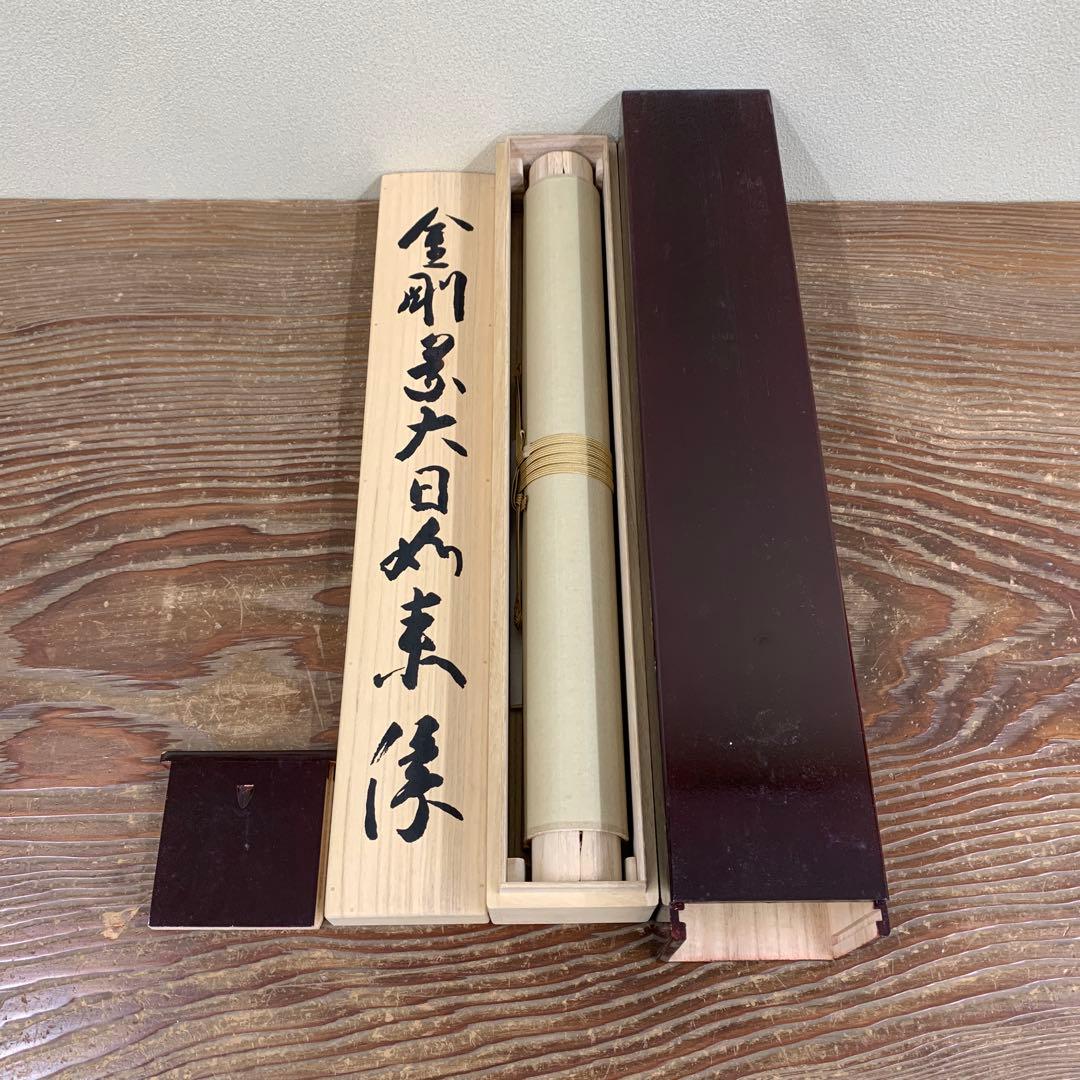 金剛界大日如来像